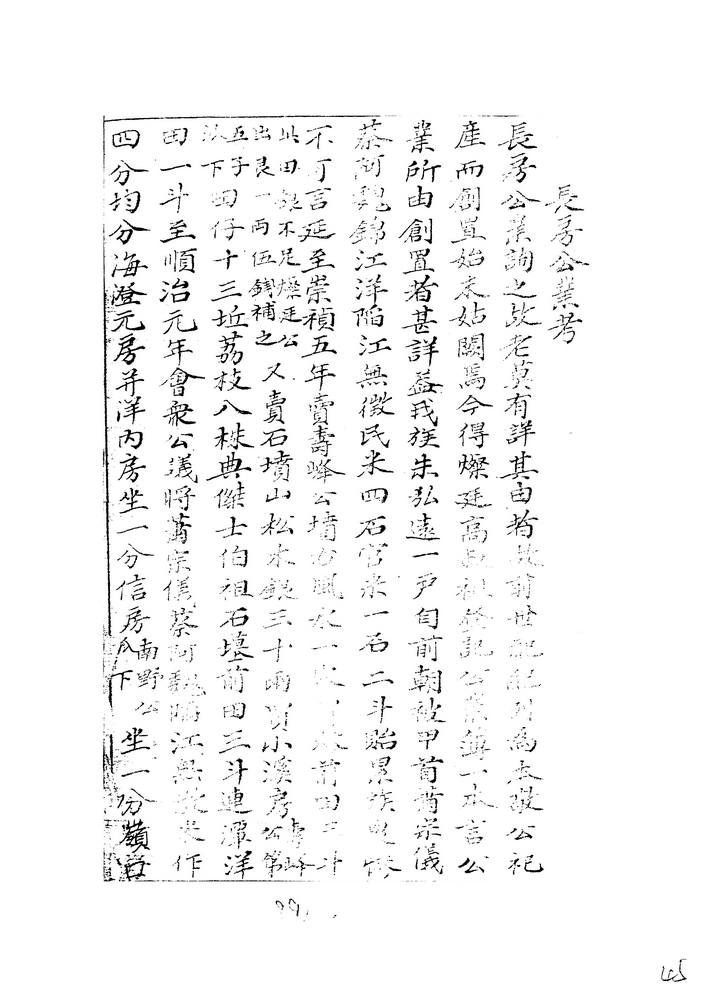 長房公業考
長房公業詢之故老莫有詳其由者故前世配列為本敬公祀
產而創置始末姑闕焉今得燦廷高叔祖公業簿一本言公
業所由創置者甚詳益我族朱弘遠一戶自前朝被甲首蕭宗儀
蔡阿魏錦江洋陷江無徵民米四石官米一石二斗貽累族
不可言延至崇禎五年賣壽峰公墳風水一前田三斗
此田銀不足燦廷公
出艮一両伍錢補之
又賣石墳山松木銀三十両買小溪房
壽峰
公第
五子
派下
田仔十三坵荔枝八株典傑士伯祖石墓前田三斗連潭洋
田一斗至順治元年會衆公議將蕭宗儀蔡阿魏陷江無徵米作
四分均分海澄元房并洋內房坐一分信房
南野公
瓜下
坐一分嶺
99
45